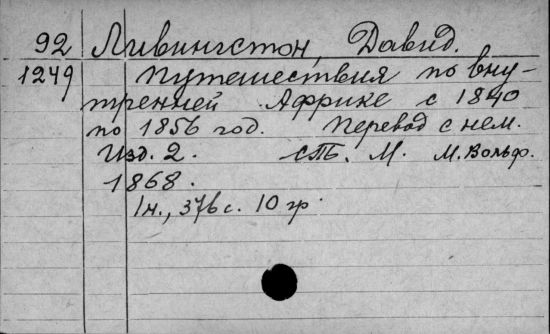 92 Ливингстон, Давид.
1249 Путешествия по вну-
тренней Африке с 1840
по 1856 год. Перевод с нем.
Изд. 2. СПб. М. М. Вольф.
1868.
1н., 376 с. 10 гр.